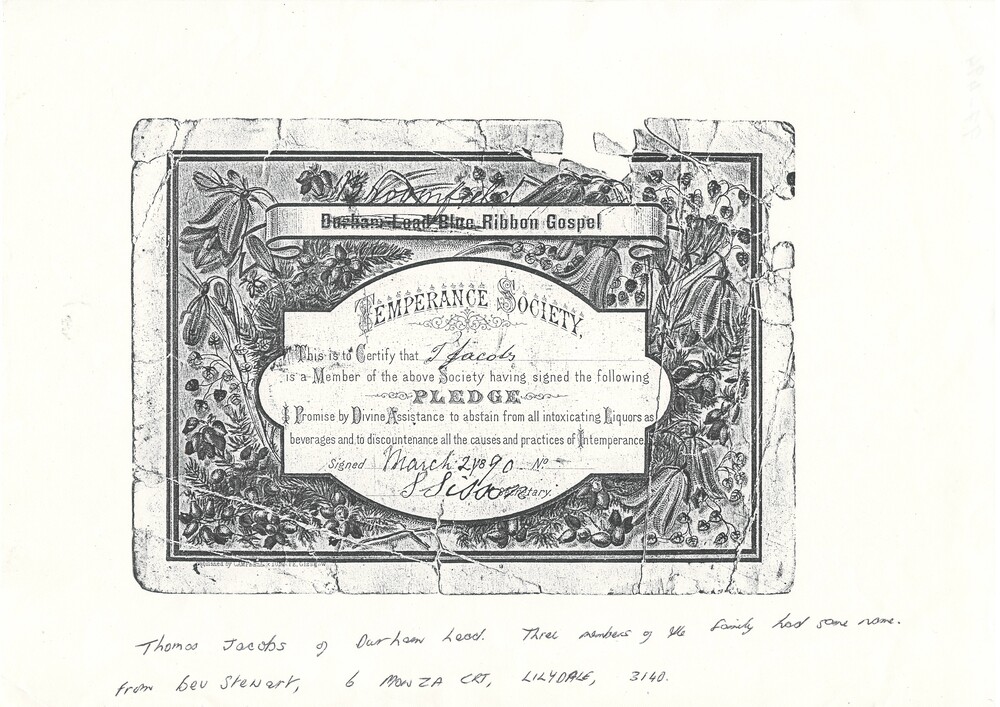 Durham Lead Blue Ribbon Gospel
TEMPERANCE SOCIETY,
This is to Certify that T Jacobs
is a Member of the above Society having signed the following
PLEDGE
I Promise by Divine Assistance to abstain from all intoxicating Liquors as
beverages and to discountenance all the causes and practices of Intemperance
Signed March 2 1890 No
Secretary.
Thomas Jacobs of Durham Lead. Three members of the family had same name.
from Bev Stewart, 6 MONZA CRT, LILYDALE, 3140.